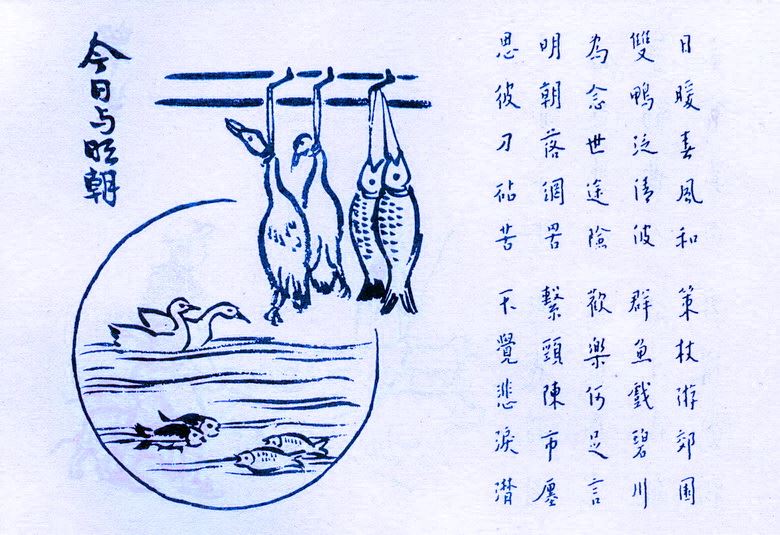 日暖春風和 策杖游郊園
雙鴨泛清波 群魚戲碧川
為念世途險 歡樂何足言
明朝落網罟 繫頸陳市廛
思彼刀砧苦 不覺悲淚潸
今日与明朝